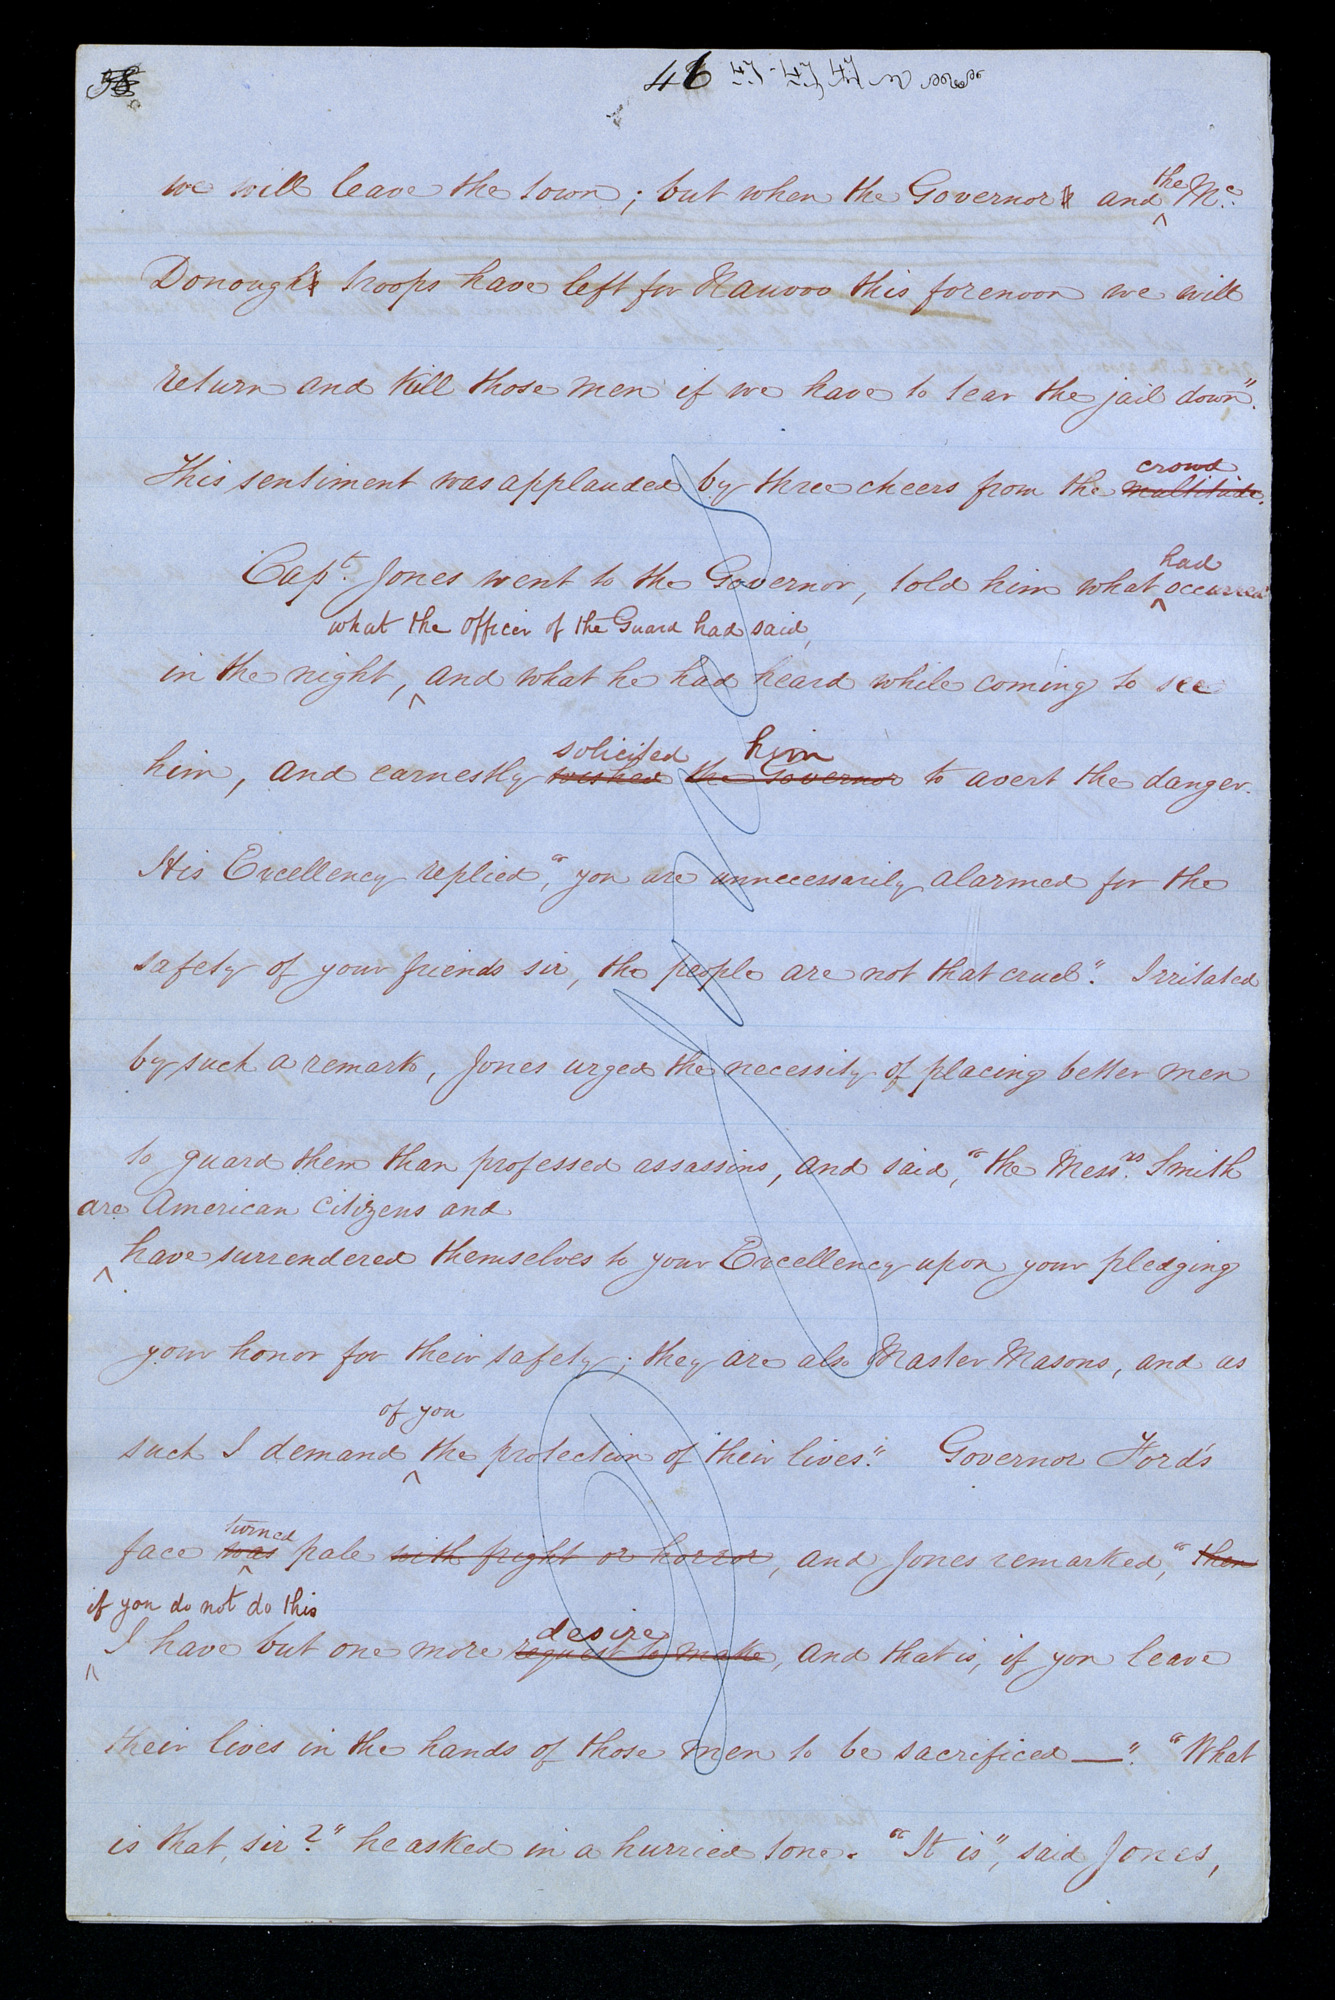 46
we will leave the town; but when the Governor and the Mc.
Donough troops have left for Nauvoo this forenoon we will
return and kill those men if we have to tear the jail down".
This sentiment was applauded by three cheers from the crowd multitude.
Capt. Jones went to the Governor, told him what had occurred
what the officer of the Guard had said,
in the night, and what he had heard while coming to see
solicited him
him, and earnestly wished the Governor to avert the danger.
His Excellency replied, "you are unnecessarily alarmed for the
safety of your friends sir, the people are not that cruel." Irritated
by such a remark, Jones urged the necessity of placing better men
to guard them than professed assassins, and said, "the Messrs. Smith
are American citizens and
have surrendered themselves to your Excellency upon your pledging
your honor for their safety; they are also Master Masons, and as
of you
such I demand the protection of their lives." Governor Ford's
turned
face was pale with fright or horror, and Jones remarked, "then
if you do not do this
desire
I have but one more request to make, and that is, if you leave
their lives in the hands of those men to be sacrificed —". "What
is that, sir?" he asked in a hurried tone. "It is", said Jones,